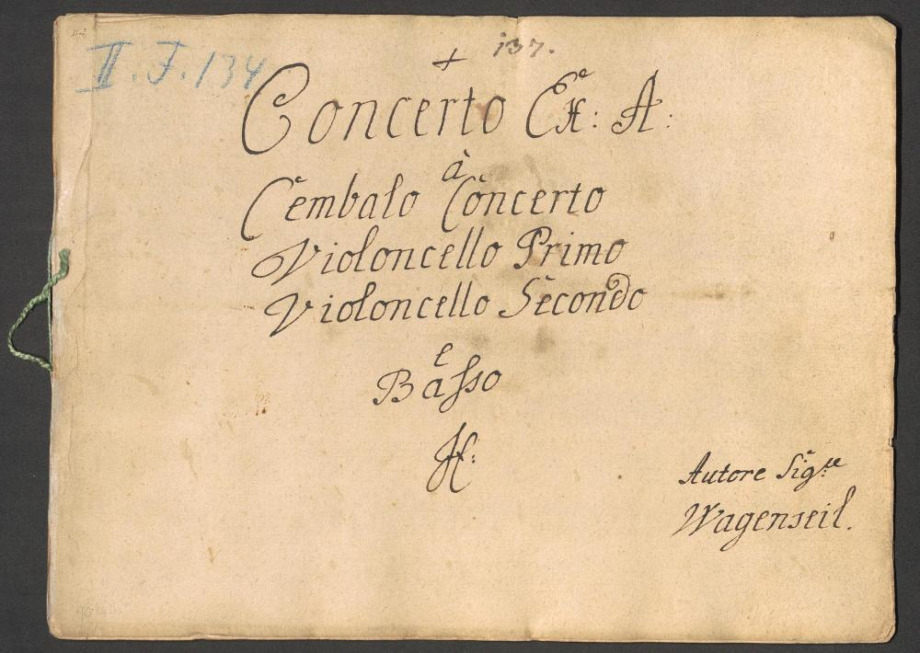 II. F. 134
+ 137.
Concerto Ex: A:
à
Cembalo Concerto
Violoncello Primo
Violoncello Secondo
e
Basso
Autore Sig:re
Wagenseil.